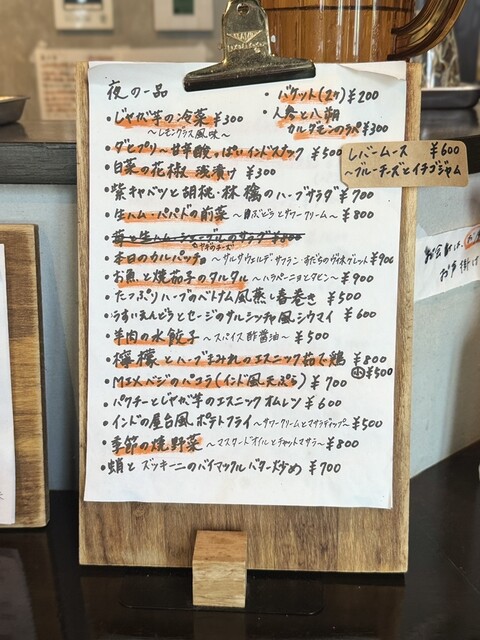 夜の一品
・じゃが芋の冷菜 ¥300
〜レモングラス風味〜
・バケット(2ヶ) ¥200
・人参と八朔
カルダモンのラペ ¥300
・ダヒプリ〜甘辛酸っぱいインドスナック ¥500
・白菜の花椒浅漬け ¥300
・紫キャベツと胡桃・林檎のハーブサラダ ¥700
・生ハム・パパドの前菜 〜干ぶどうとサワークリーム〜 ¥800
・本日のカルパッチョ 〜サルサヴェルデ・サフラン・すだちのヴィネグレット ¥900
・お魚と焼茄子のタルタル 〜ハラペーニョとタヒン〜 ¥900
・たっぷりハーブのベトナム風蒸し春巻き ¥500
・うすいえんどうとセージのサルシッチャ風シウマイ ¥600
・羊肉の水餃子 〜スパイス酢醤油〜 ¥500
・檸檬とハーブまみれのエスニック茹で鶏 ¥800
小¥500
・MIXバジのパコラ(インド風天ぷら) ¥700
・パクチーとじゃが芋のエスニックオムレツ ¥600
・インドの屋台風ポテトフライ 〜サワークリームとマサラディップ〜 ¥500
・季節の焼野菜 〜マスタードオイルとチャットマサラ〜 ¥800
・蛸とズッキーニのバイマックルバター炒め ¥700
レバームース ¥600
〜ブルーチーズとイチゴジャム
お会計は、